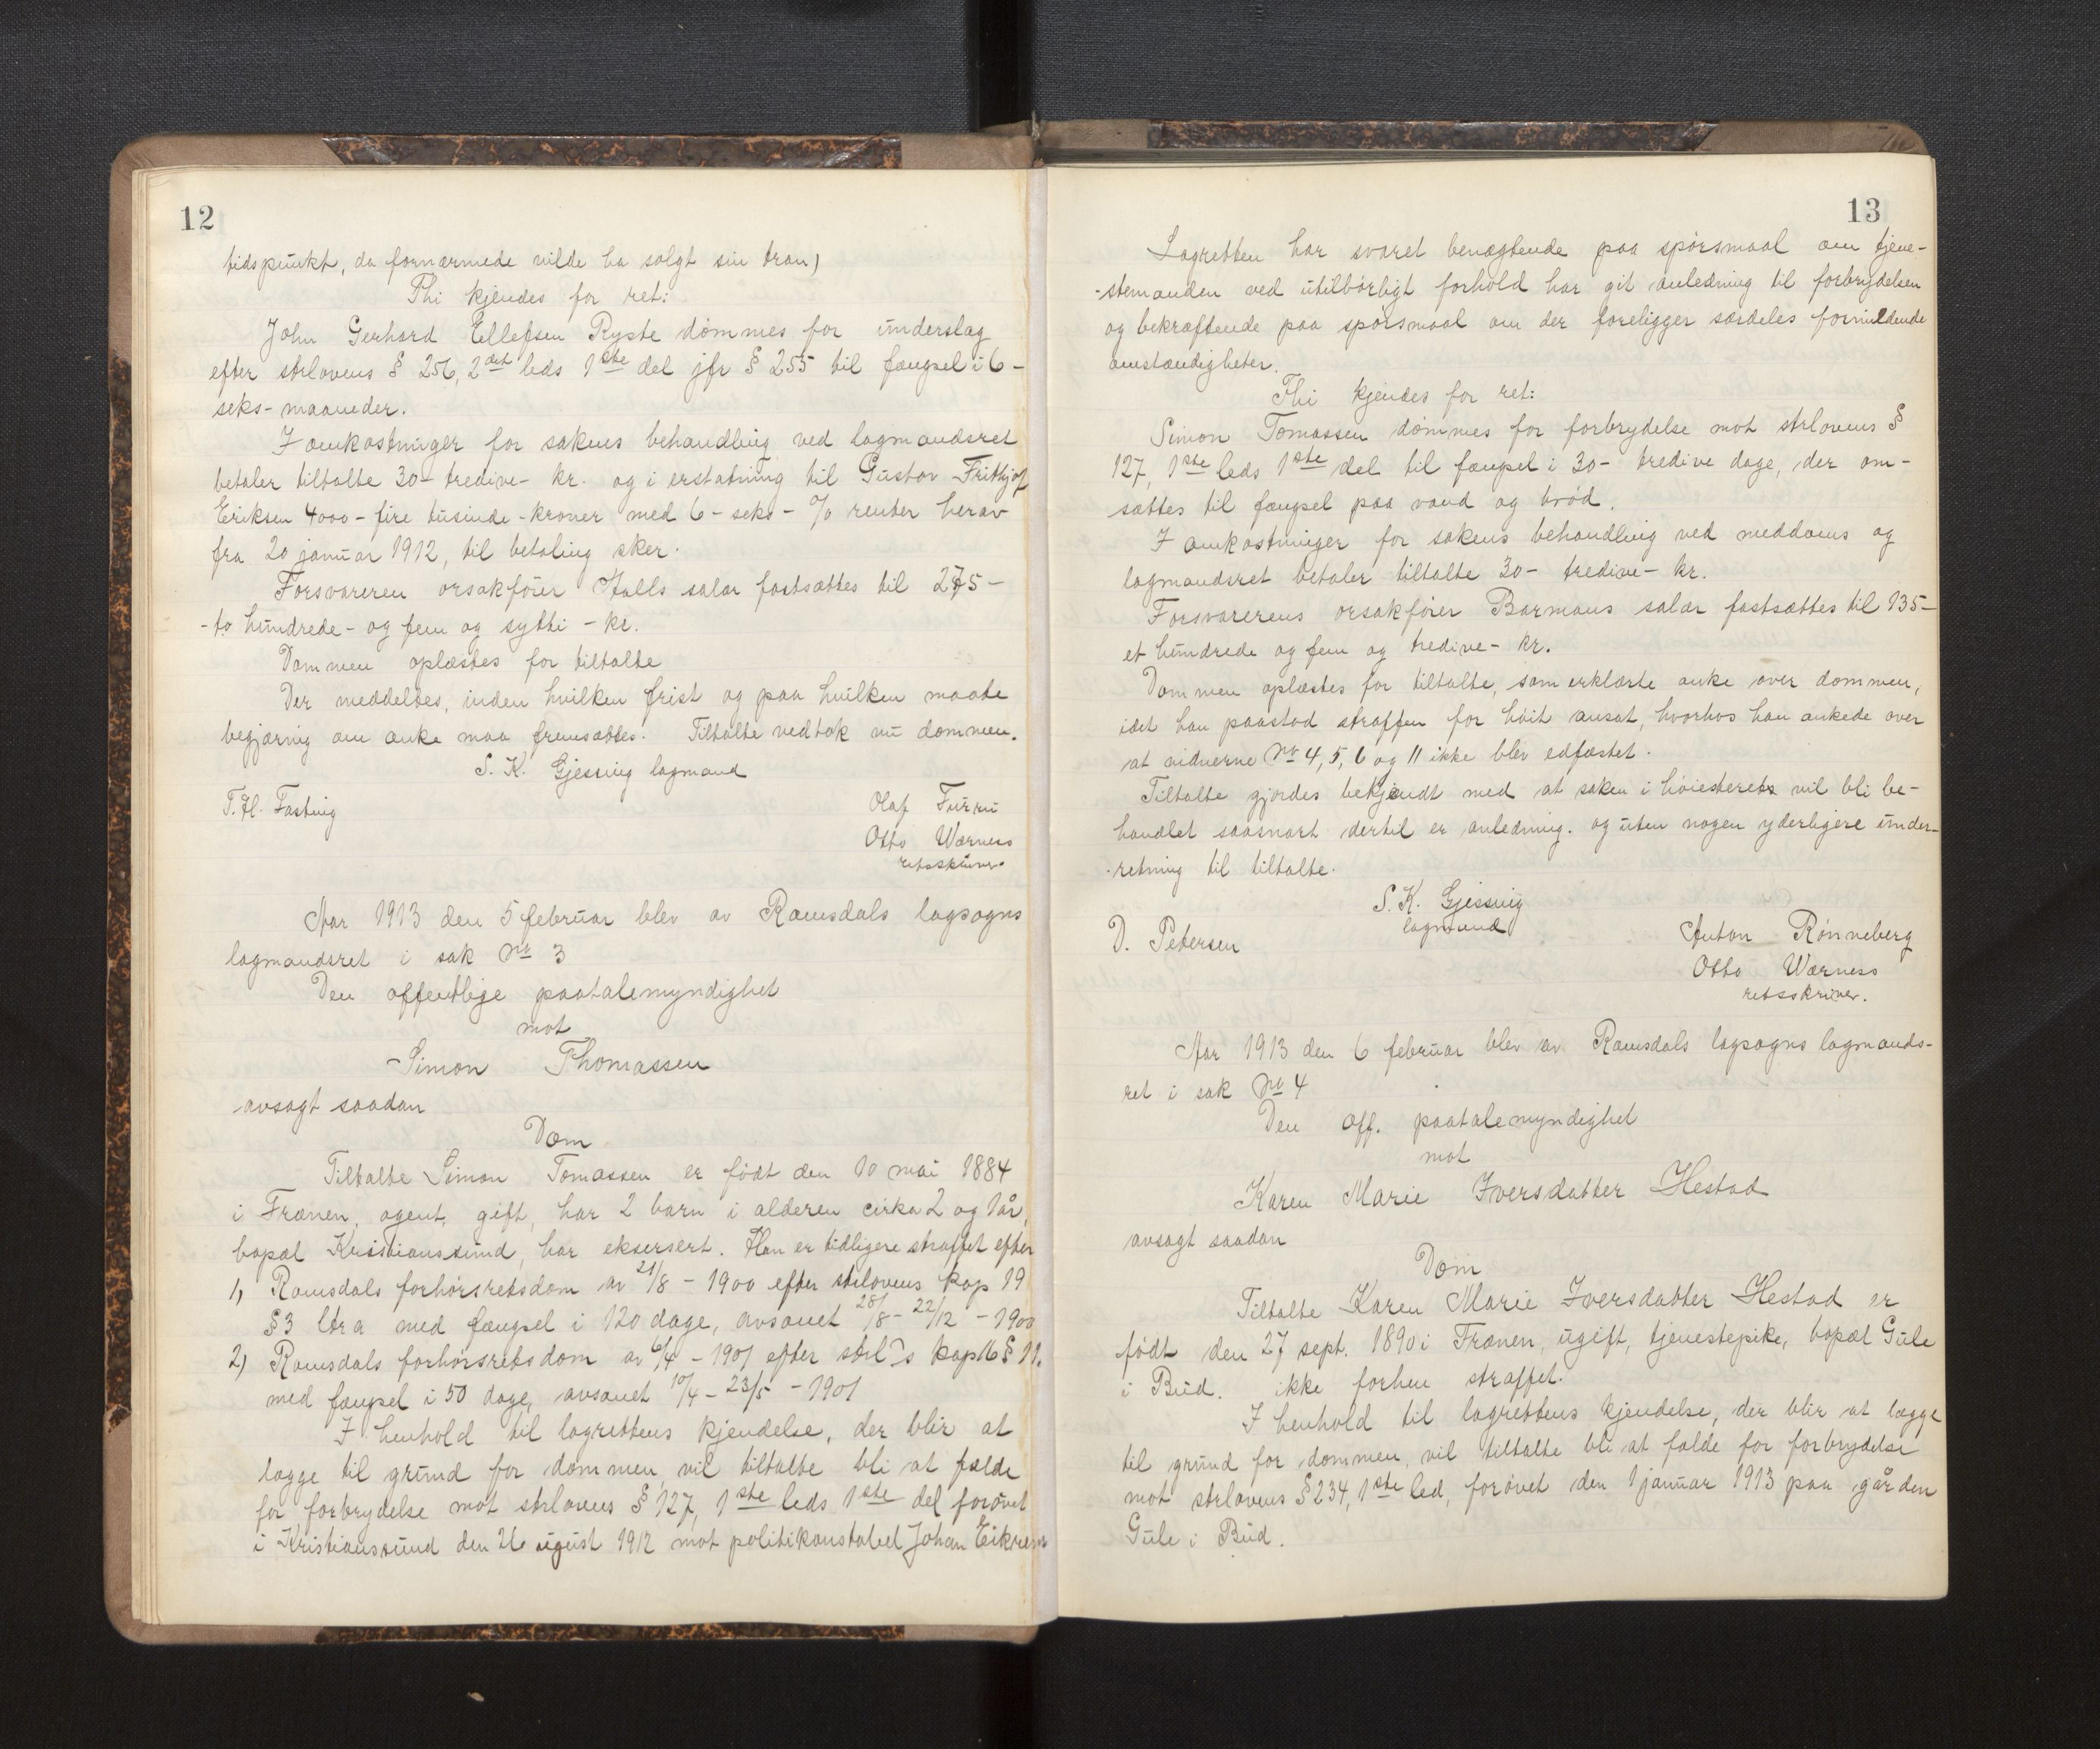 12
tidspunkt, da fornærmede vilde ha solgt sin tran)
Thi kjendes for ret:
John Gerhard Ellefsen Ryste dømmes for underslag
efter strlovens § 256, 2det leds 1ste del jfr § 255 til fængsel i 6 -
seks - maaneder.
I omkostninger for sakens behandling ved lagmandsret
betaler tiltalte 30 - tredive - kr. og i erstatning til Gustav Frithjof
Eriksen 4000 - fire tusinde - kroner med 6 - seks - % renter herav
fra 20 januar 1912, til betaling sker.
Forsvareren orsakfører Halls salær fastsættes til 275 -
- to hundrede - og fem og sytti - kr.
Dommen oplæstes for tiltalte
Der meddeltes, inden hvilken frist og paa hvilken maate
begjæring om anke maa fremsættes. Tiltalte vedtok nu dommen.
S. K. Gjessing lagmand
T. H. Fasting
Olaf Furru
Otto Wærness
retsskriver.
Aar 1913 den 5 februar blev av Romsdals lagsogns
lagmandsret i sak No 3
Den offentlige paatalemyndighet
mot
Simon Thomassen
avsagt saadan
Dom
Tiltalte Simon Tomassen er født den 10 mai 1884
i Frænen, agent, gift, har 2 barn i alderen cirka 2 og 1 år,
bopæl Kristianssund, har eksersert. Han er tidligere straffet efter
1, Romsdals forhørsretsdom av 21/8 - 1900 efter strlovens kap 19
§ 3 ltra med fængsel i 120 dage, avsonet 28/8 - 22/12 - 1900
2) Romsdals forhørsretsdom av 6/4 - 1901 efter strl's kap 16 § 11.
med fængsel i 50 dage, avsonet 10/4 - 23/5 - 1901
I henhold til lagrettens kjendelse, der blir at
lægge til grund for dommen vil tiltalte bli at fælde
for forbrydelse mot strlovens § 127, 1ste leds 1ste del forøvet
i Kristianssund den 26 august 1912 mot politikonstabel Johan Eikrem
13
Lagretten har svaret benægtende paa spørsmaal om tjene-
-stemanden ved utilbørligt forhold har git anledning til forbrydelsen
og bekræftende paa spørsmaal om der foreligger særdeles formildende
omstændigheter.
Thi kjendes for ret:
Simon Tomassen dømmes for forbrydelse mot strlovens §
127, 1ste leds 1ste del til fængsel i 30 - tredive dage, der om-
sættes til fængsel paa vand og brød.
I omkostninger for sakens behandling ved meddoms og
lagmandsret betaler tiltalte 30 - tredive - kr.
Forsvarerens orsakfører Barmans salær fastsættes til 135 -
et hundrede og fem og tredive - kr.
Dommen oplæstes for tiltalte, som erklærte anke over dommen,
idet han paastod straffen for høit ansat, hvorhos han ankede over
at vidnerne No 4, 5, 6 og 11 ikke blev edfæstet.
Tiltalte gjordes bekjendt med at saken i høiesteret vil bli be-
handlet saasnart dertil er anledning. og uten nogen yderligere under-
-retning til tiltalte.
S. K. Gjessing
lagmand
D. Petersen
Anton Rønneberg
Otto Wærness
retsskriver.
Aar 1913 den 6 februar blev av Romsdals lagsogns lagmands-
ret i sak No 4
Den off. paatalemyndighet
mot
Karen Marie Iversdatter Hestad
avsagt saadan
Dom
Tiltalte Karen Marie Iversdatter Hestad er
født den 27 sept. 1890 i Frænen, ugift, tjenestepike, bopæl Gule
i Bud. ikke forhen straffet.
I henhold til lagrettens kjendelse, der blir at lægge
til grund for dommen, vil tiltalte bli at fælde for forbrydelse
mot strlovens § 234, 1ste led, forøvet den 1 januar 1913 paa gården
Gule i Bud.